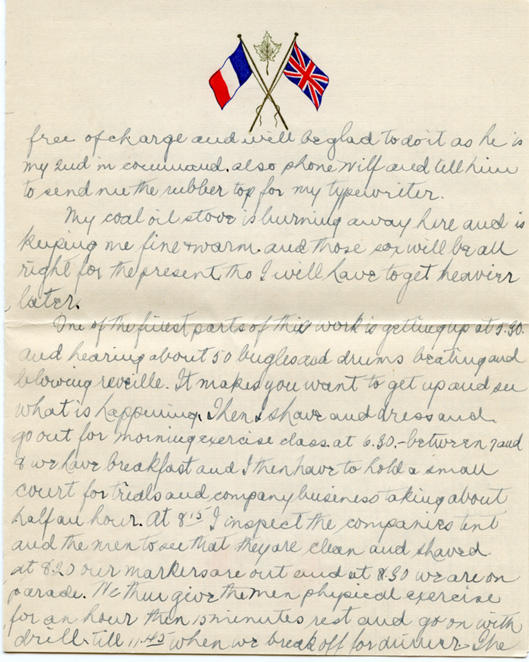 free of charge and will be glad to do it as he is
my 2nd in command. also phone Wilf and tell him
to send me the rubber top for my typewriter.
My coal oil stove is burning away here and is
keeping me fine & warm. and those sox will be all
right for the present, tho I will have to get heavier
later.
One of the finest parts of this work is getting up at 5.30.
and hearing about 50 bugles and drums beating and
blowing reveille. It makes you want to get up and see
what is happening. Then I shave and dress and
go out for morning exercise class. at 6.30.- between 7 and
8 we have breakfast and I then have to hold a small
court for trials and company business taking about
half an hour. At 8 15 I inspect the companies tent
and the men to see that they are clean and shaved
at 8.20 our markers are out and at 8.30 we are on
parade. We thus give the men physical exercise
for an hour then 15 minutes rest and go on with
drill till 11.45 when we break off for dinner. The